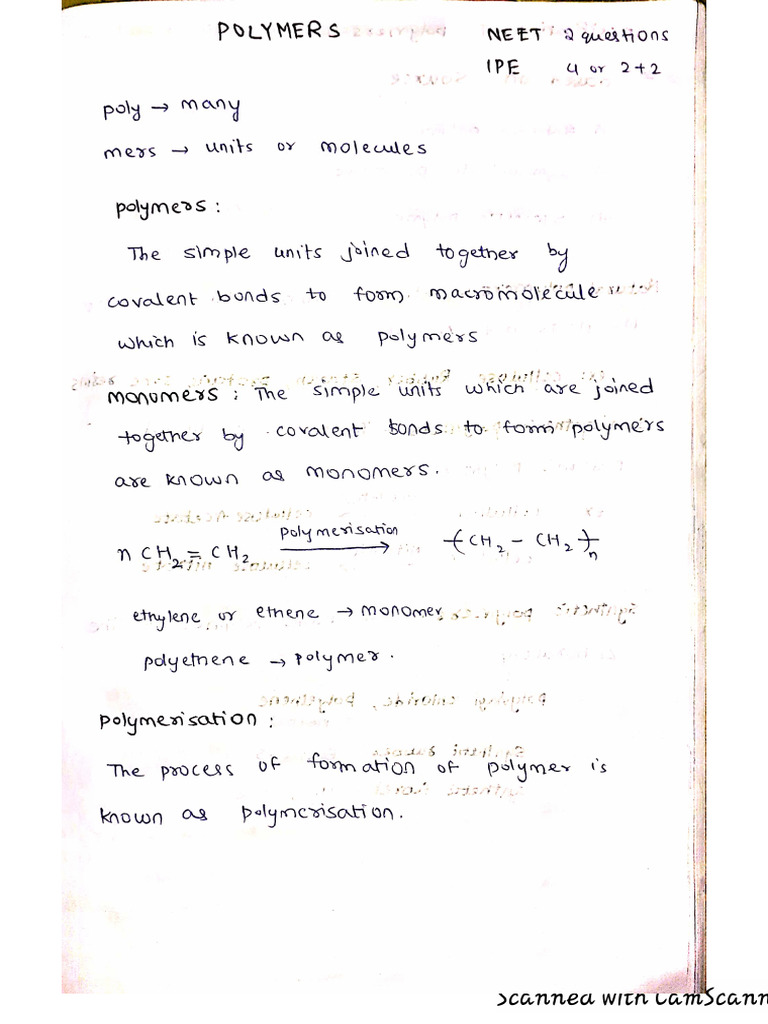 POLYMERS
NEET 2 questions
IPE 4 or 2+2
poly → many
mers → units or molecules
polymers :
The simple units joined together by
covalent bonds to form macromolecule
which is known as polymers
monomers : The simple units which are joined
together by covalent bonds to form polymers
are known as monomers.
n CH₂ = CH₂ polymerisation → -(CH₂ - CH₂)-ₙ
ethylene or ethene → monomer
polyethene → polymer.
polymerisation :
The process of formation of polymer is
known as polymerisation.
Scanned with CamScann